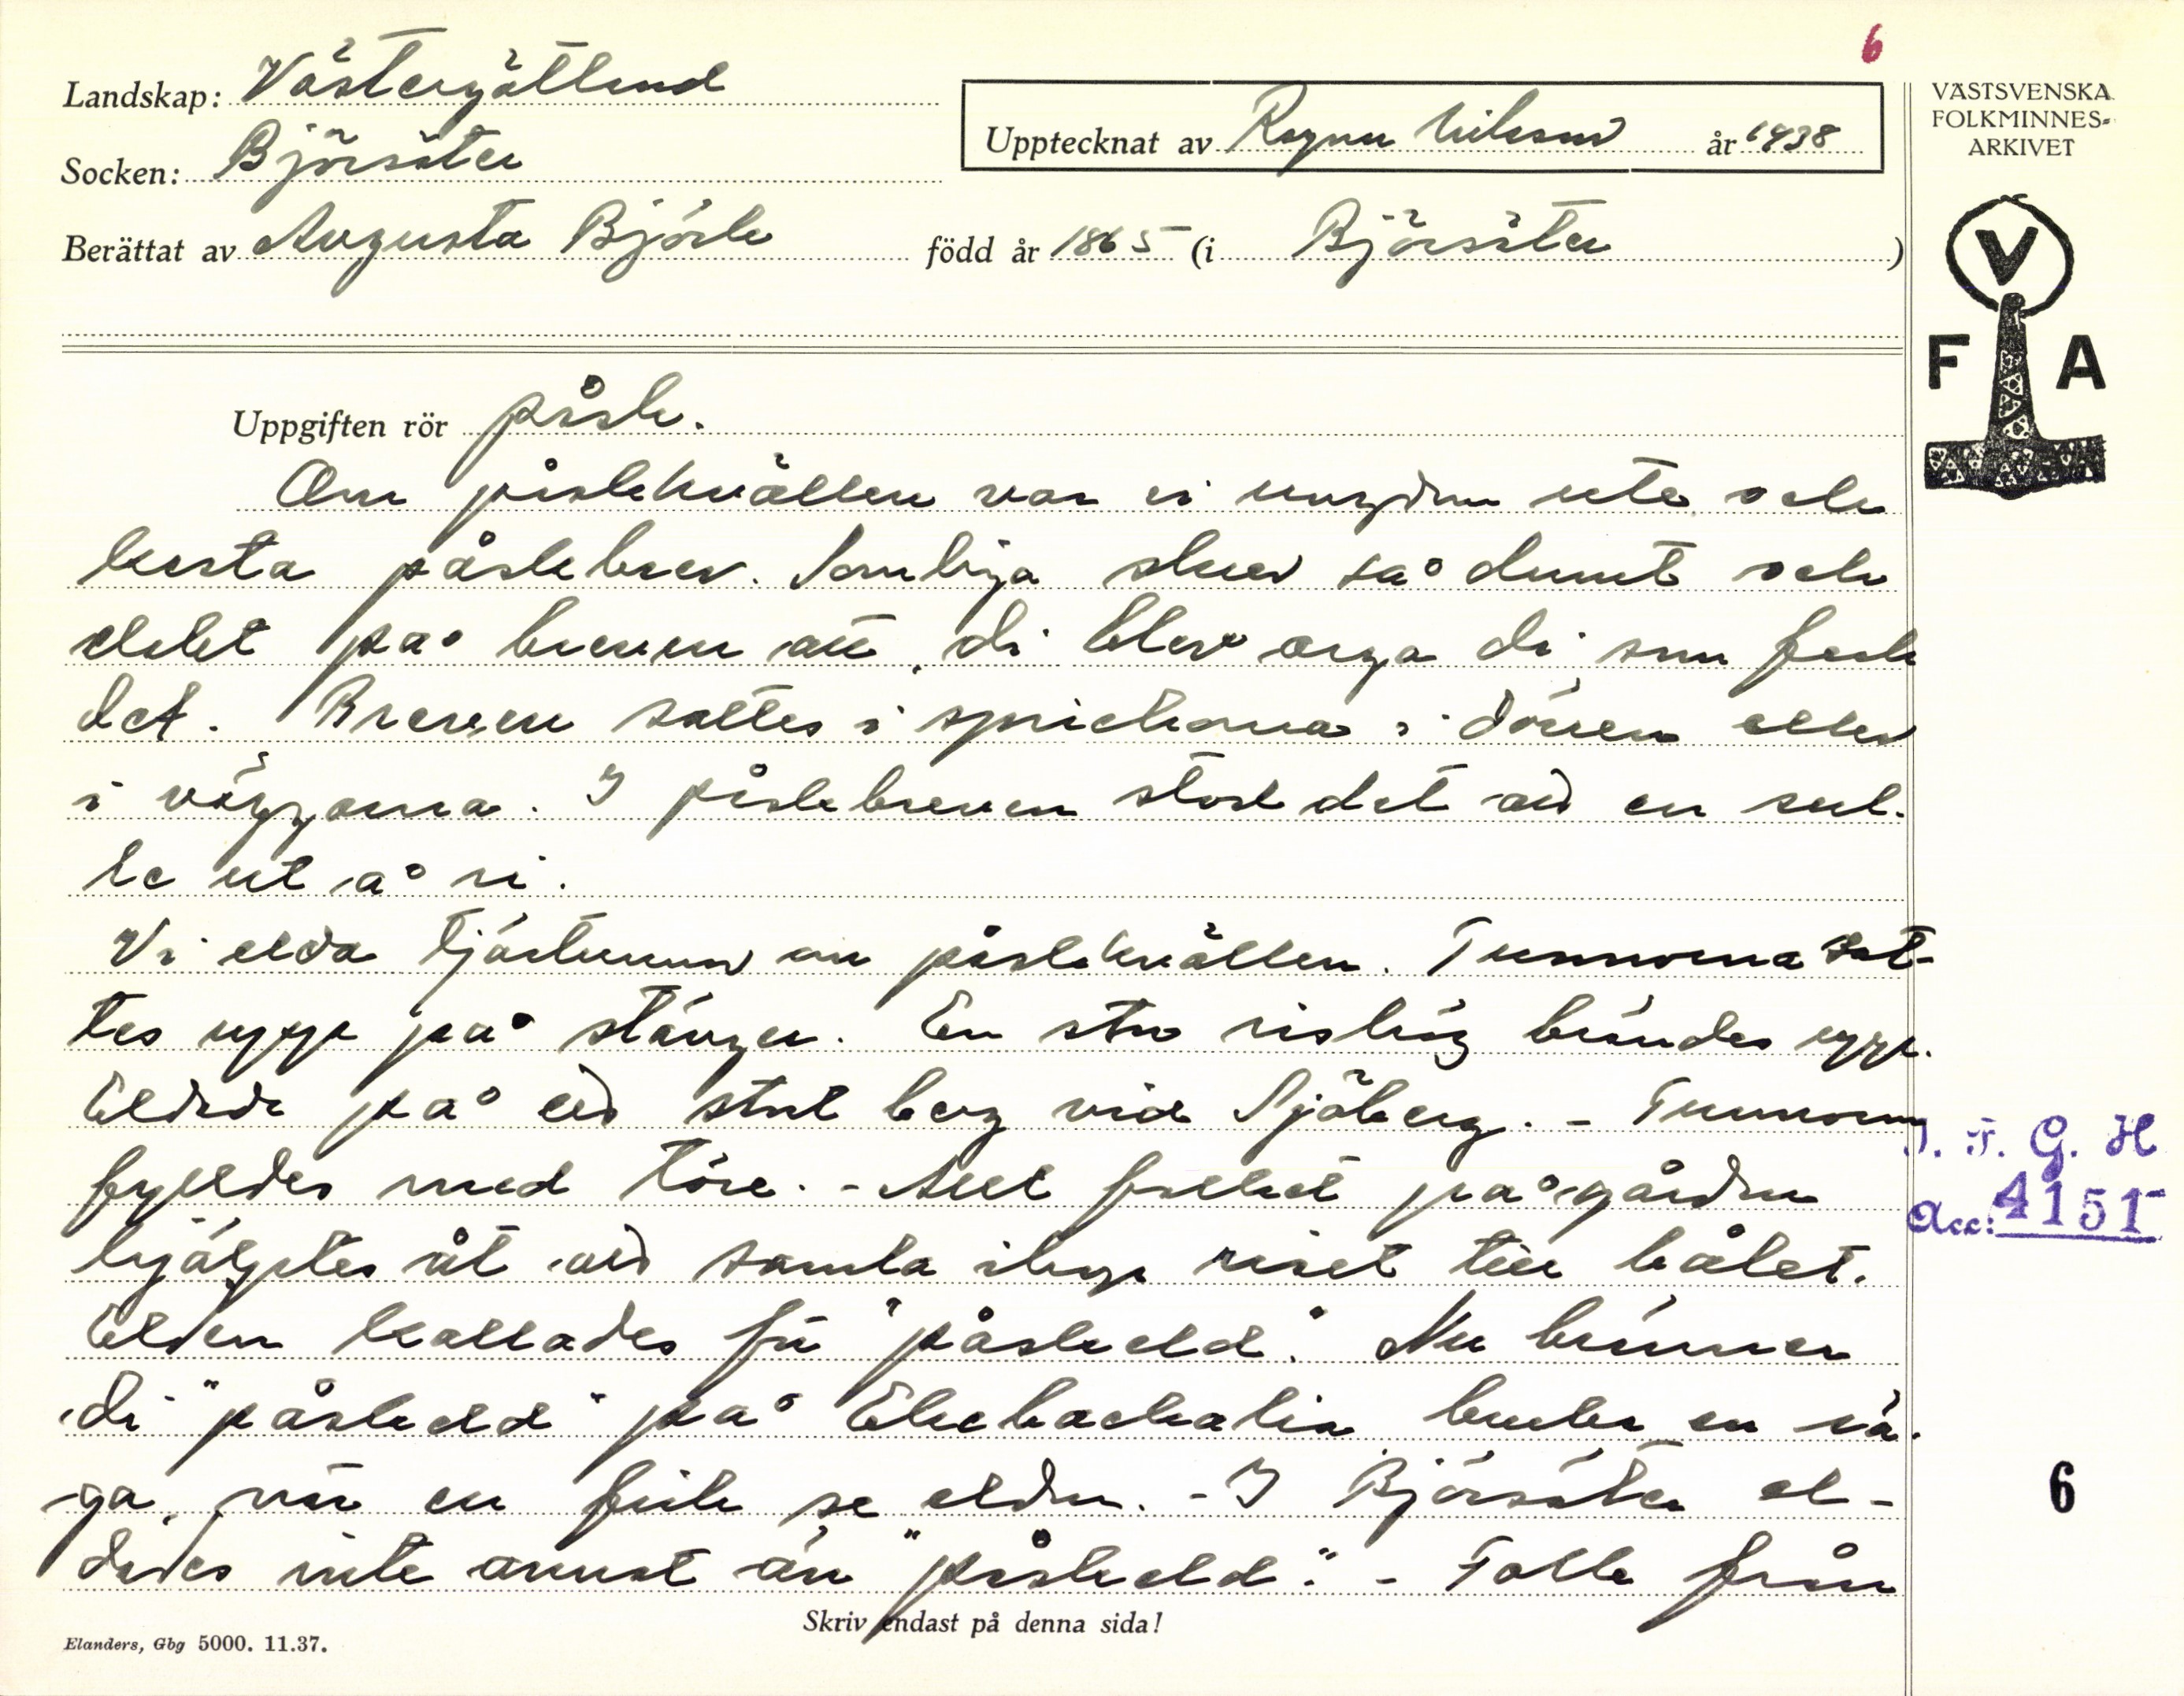 6
Landskap: Västergötland
Socken: Björsäter
Upptecknat av Ragnar Nilsson år 1938
Berättat av Augusta Björk född år 1865 (i Björsäter)
VÄSTSVENSKA
FOLKMINNES-
ARKIVET
V
F A
Uppgiften rör påsk.
Om påskkvällen var vi ungdom ute och
kasta påskbrev. Somliga skrev så dumt och
elakt på breven att di blev arga di som fick
det. Breven sattes i sprickorna i dörren eller
i väggarna. I påskbreven stod det att en skul-
le ut å ri.
Vi elda tjärtunnor om påskkvällen. Tunnorna sat-
tes upp på stänger. En stor rishög brändes upp.
Eldade på ett stort berg vid Sjöberg. - Tunnorna
fylldes med töre. - Allt folket på gården
hjälptes åt att samla ihop riset till bålet.
Elden kallades för "påskeld". Nu bränner
di "påskeld" på brukar en sä-
ga när en fick se elden. - I Björsäter el-
dades inte annat än "påskeld". - Folk från
I. F. G. H
Acc: 4151
6
Skriv endast på denna sida!
Elanders, Gbg 5000. 11.37.